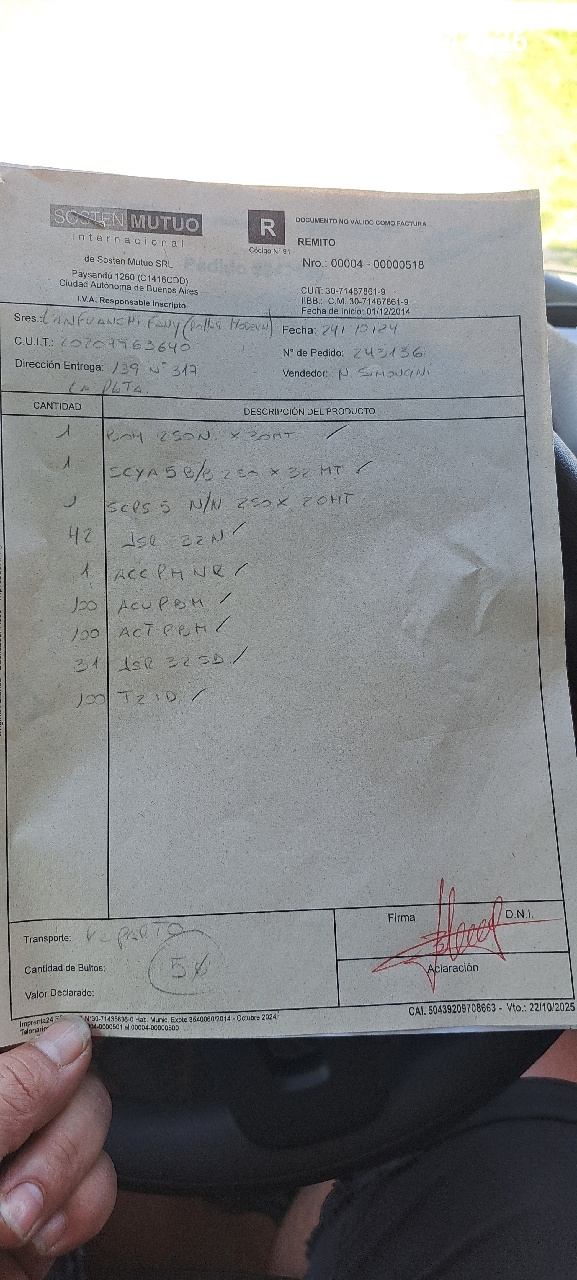 SOSTEN MUTUO
internacional
de Sosten Mutuo SRL
Paysandú 1260 (C1416CDD)
Ciudad Autónoma de Buenos Aires
I.V.A. Responsable Inscripto
R
Código N° 91
DOCUMENTO NO VÁLIDO COMO FACTURA
REMITO
Nro.: 00004 - 00000518
CUIT: 30-71467861-9
IIBB.: C.M. 30-71467861-9
Fecha de Inicio: 01/12/2014
Sres.: LANFRANCHI FANY
Fecha: 24/10/24
C.U.I.T.: 20207963640
N° de Pedido: 243136
Dirección Entrega: 139 N° 317
Vendedor: N SIMONCINI
LA PLATA
CANTIDAD DESCRIPCIÓN DEL PRODUCTO
1 250N x 30MT
1 SCYA 5 B/B 250 x 32 MT
1 SCPS 5 N/N 250 x 20MT
42 JSR 32N
1 ACCPMNR
100 ACUPBM
100 ACTPBM
31 JSR 32SD
100 T21D
Transporte: REPARTO
Cantidad de Bultos: 56
Valor Declarado:
Firma D.N.I.
Aclaración
Hab. Munic. Expte 3640060/2014 - Octubre 2024
al 00004-00000600
CAI. 50439209708663 - Vto.: 22/10/2025